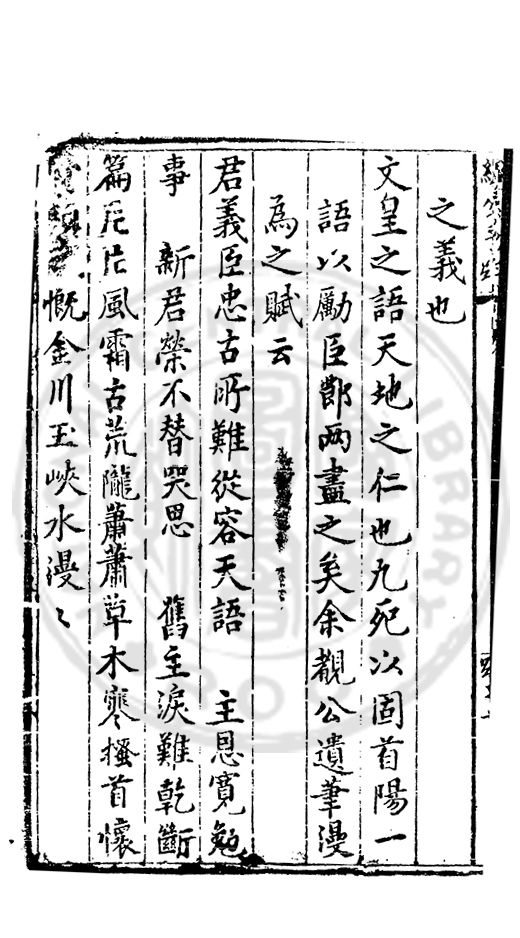 之義也
文皇之語天地之仁也九死以固首陽一
語以勵臣鄰兩盡之矣余覩公遺筆漫
為之賦云
君義臣忠古所難從容天語 主恩寬勉
事 新君榮不替哭思 舊主淚難乾斷
篇片片風霜古荒隴蕭蕭草木寒搔首懷
慨金川玉峽水漫〻
LIBRARY